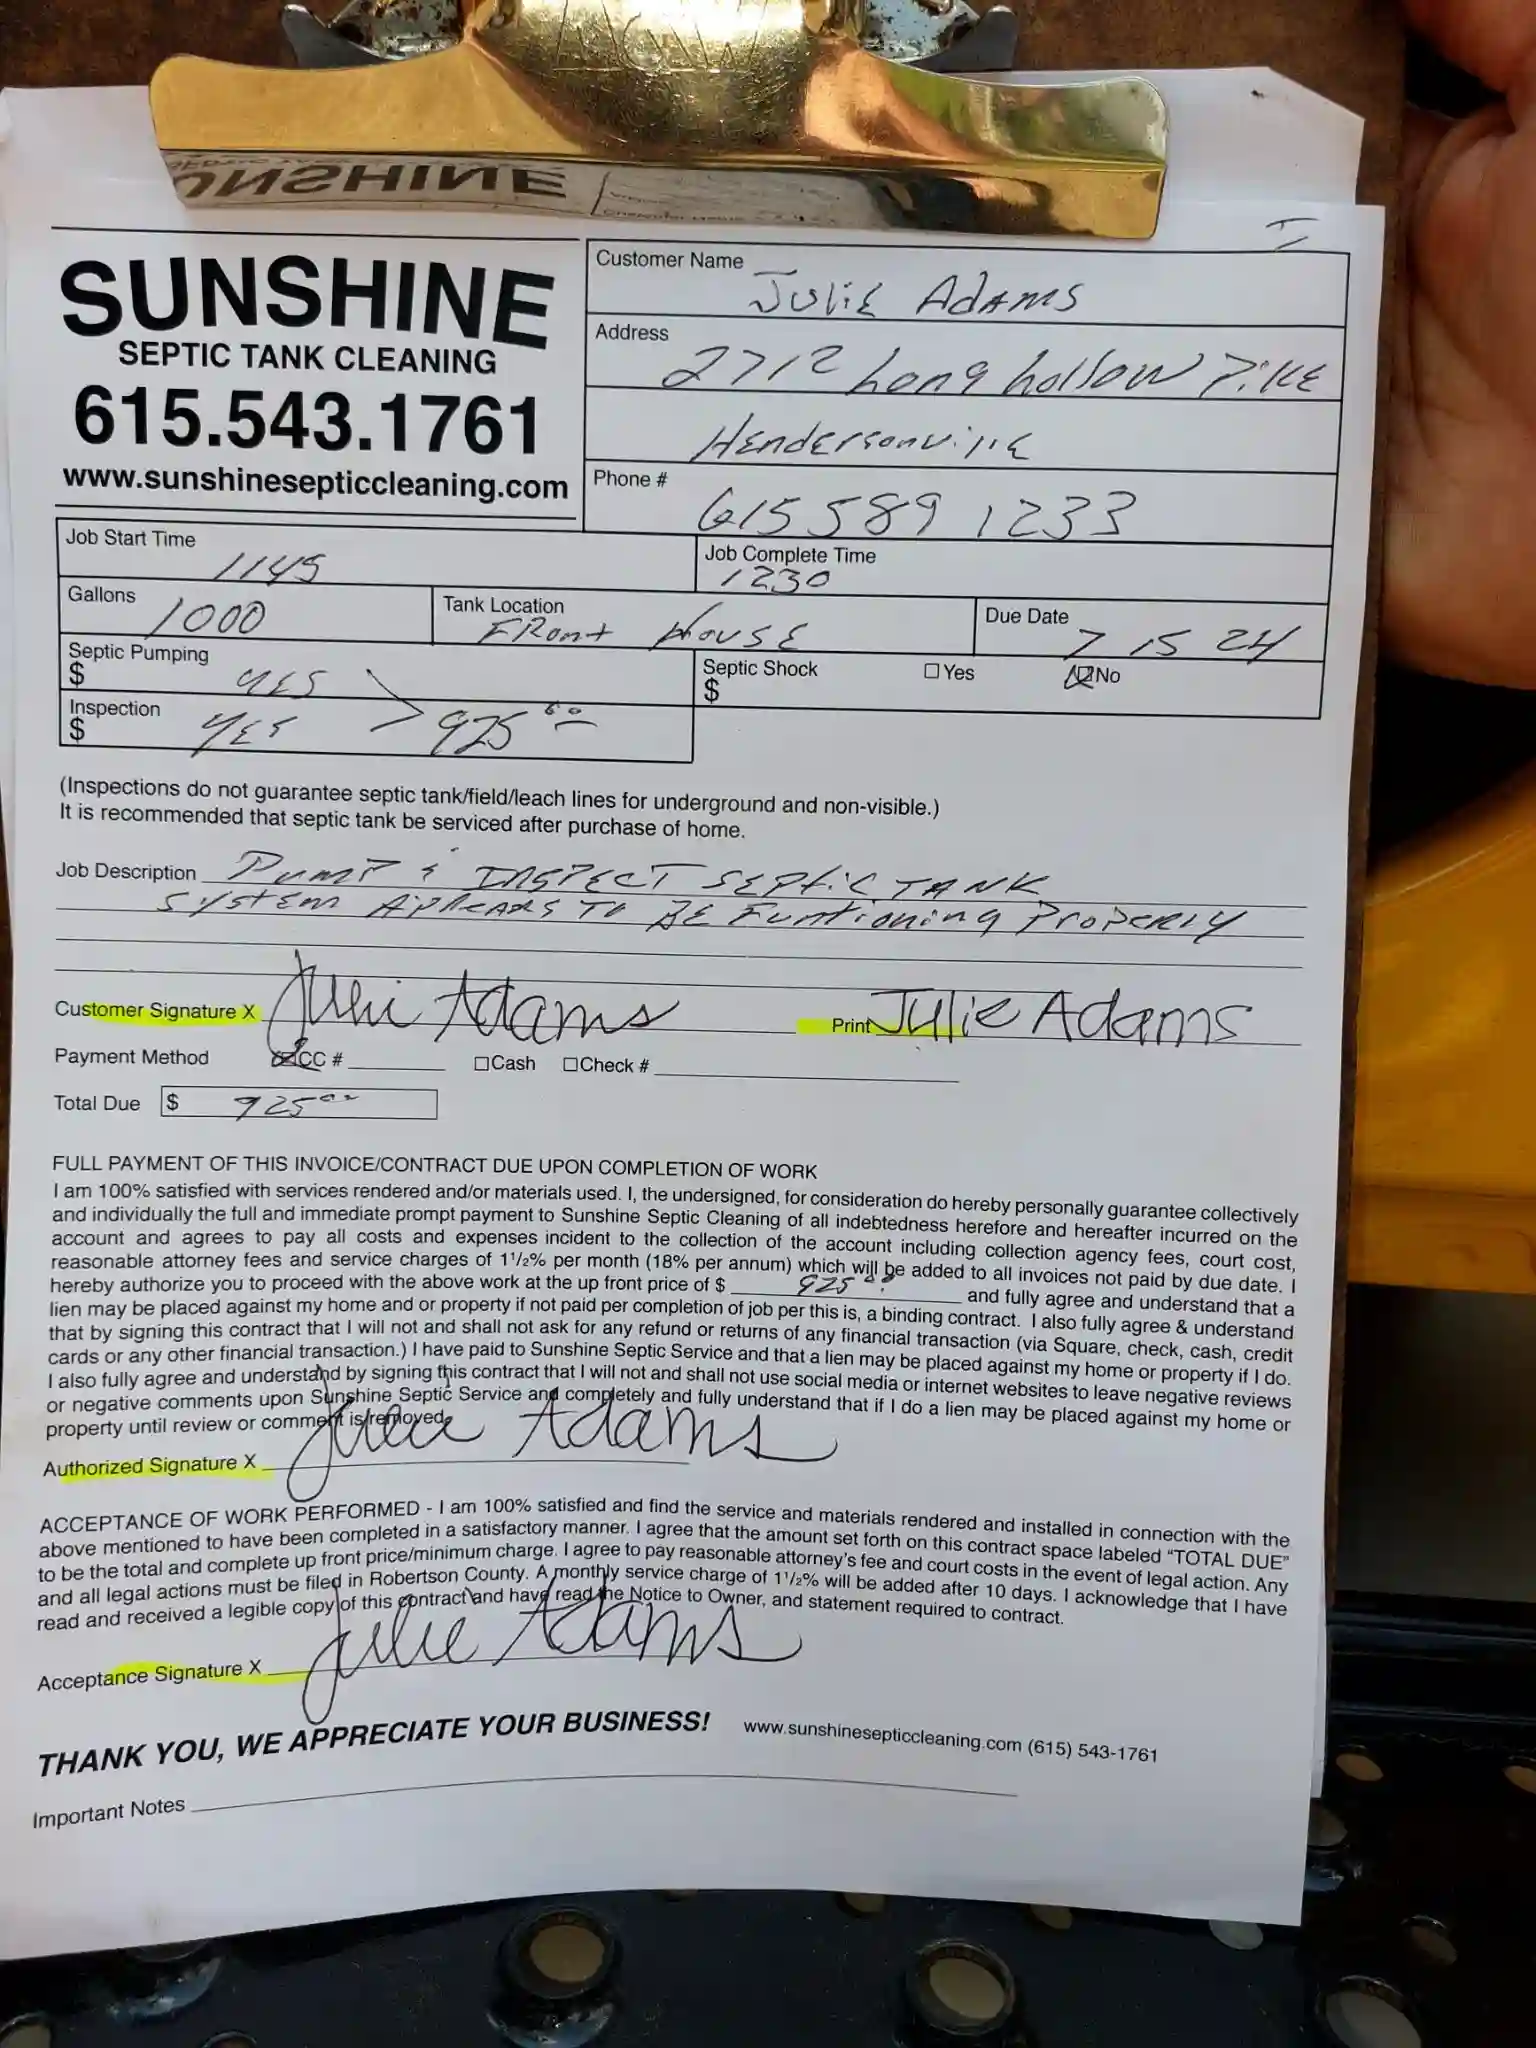 SUNSHINE
SUNSHINE
SEPTIC TANK CLEANING
615.543.1761
www.sunshinesepticcleaning.com
Customer Name Julie Adams
Address 2712 Long hollow Pike
Hendersonville
Phone # 615 589 1233
Job Start Time 1145
Job Complete Time 1230
Gallons 1000
Tank Location FRont House
Due Date 7 15 24
Septic Pumping $ YES
Septic Shock $ Yes No
Inspection $ YES 925 00
(Inspections do not guarantee septic tank/field/leach lines for underground and non-visible.)
It is recommended that septic tank be serviced after purchase of home.
Job Description Pump & INSPECT SEPtic TANK
SYSTEM APPEARS TO BE Funtioning Properly
Customer Signature X Julie Adams Print Julie Adams
Payment Method CC # Cash Check #
Total Due $ 925 00
FULL PAYMENT OF THIS INVOICE/CONTRACT DUE UPON COMPLETION OF WORK
I am 100% satisfied with services rendered and/or materials used. I, the undersigned, for consideration do hereby personally guarantee collectively
and individually the full and immediate prompt payment to Sunshine Septic Cleaning of all indebtedness herefore and hereafter incurred on the
account and agrees to pay all costs and expenses incident to the collection of the account including collection agency fees, court cost,
reasonable attorney fees and service charges of 1 1/2% per month (18% per annum) which will be added to all invoices not paid by due date. I
hereby authorize you to proceed with the above work at the up front price of $ 925 00 and fully agree and understand that a
lien may be placed against my home and or property if not paid per completion of job per this is, a binding contract. I also fully agree & understand
that by signing this contract that I will not and shall not ask for any refund or returns of any financial transaction (via Square, check, cash, credit
cards or any other financial transaction.) I have paid to Sunshine Septic Service and that a lien may be placed against my home or property if I do.
I also fully agree and understand by signing this contract that I will not and shall not use social media or internet websites to leave negative reviews
or negative comments upon Sunshine Septic Service and completely and fully understand that if I do a lien may be placed against my home or
property until review or comment is removed.
Authorized Signature X Julie Adams
ACCEPTANCE OF WORK PERFORMED - I am 100% satisfied and find the service and materials rendered and installed in connection with the
above mentioned to have been completed in a satisfactory manner. I agree that the amount set forth on this contract space labeled “TOTAL DUE”
to be the total and complete up front price/minimum charge. I agree to pay reasonable attorney's fee and court costs in the event of legal action. Any
and all legal actions must be filed in Robertson County. A monthly service charge of 1 1/2% will be added after 10 days. I acknowledge that I have
read and received a legible copy of this contract and have read the Notice to Owner, and statement required to contract.
Acceptance Signature X Julie Adams
THANK YOU, WE APPRECIATE YOUR BUSINESS! www.sunshinesepticcleaning.com (615) 543-1761
Important Notes